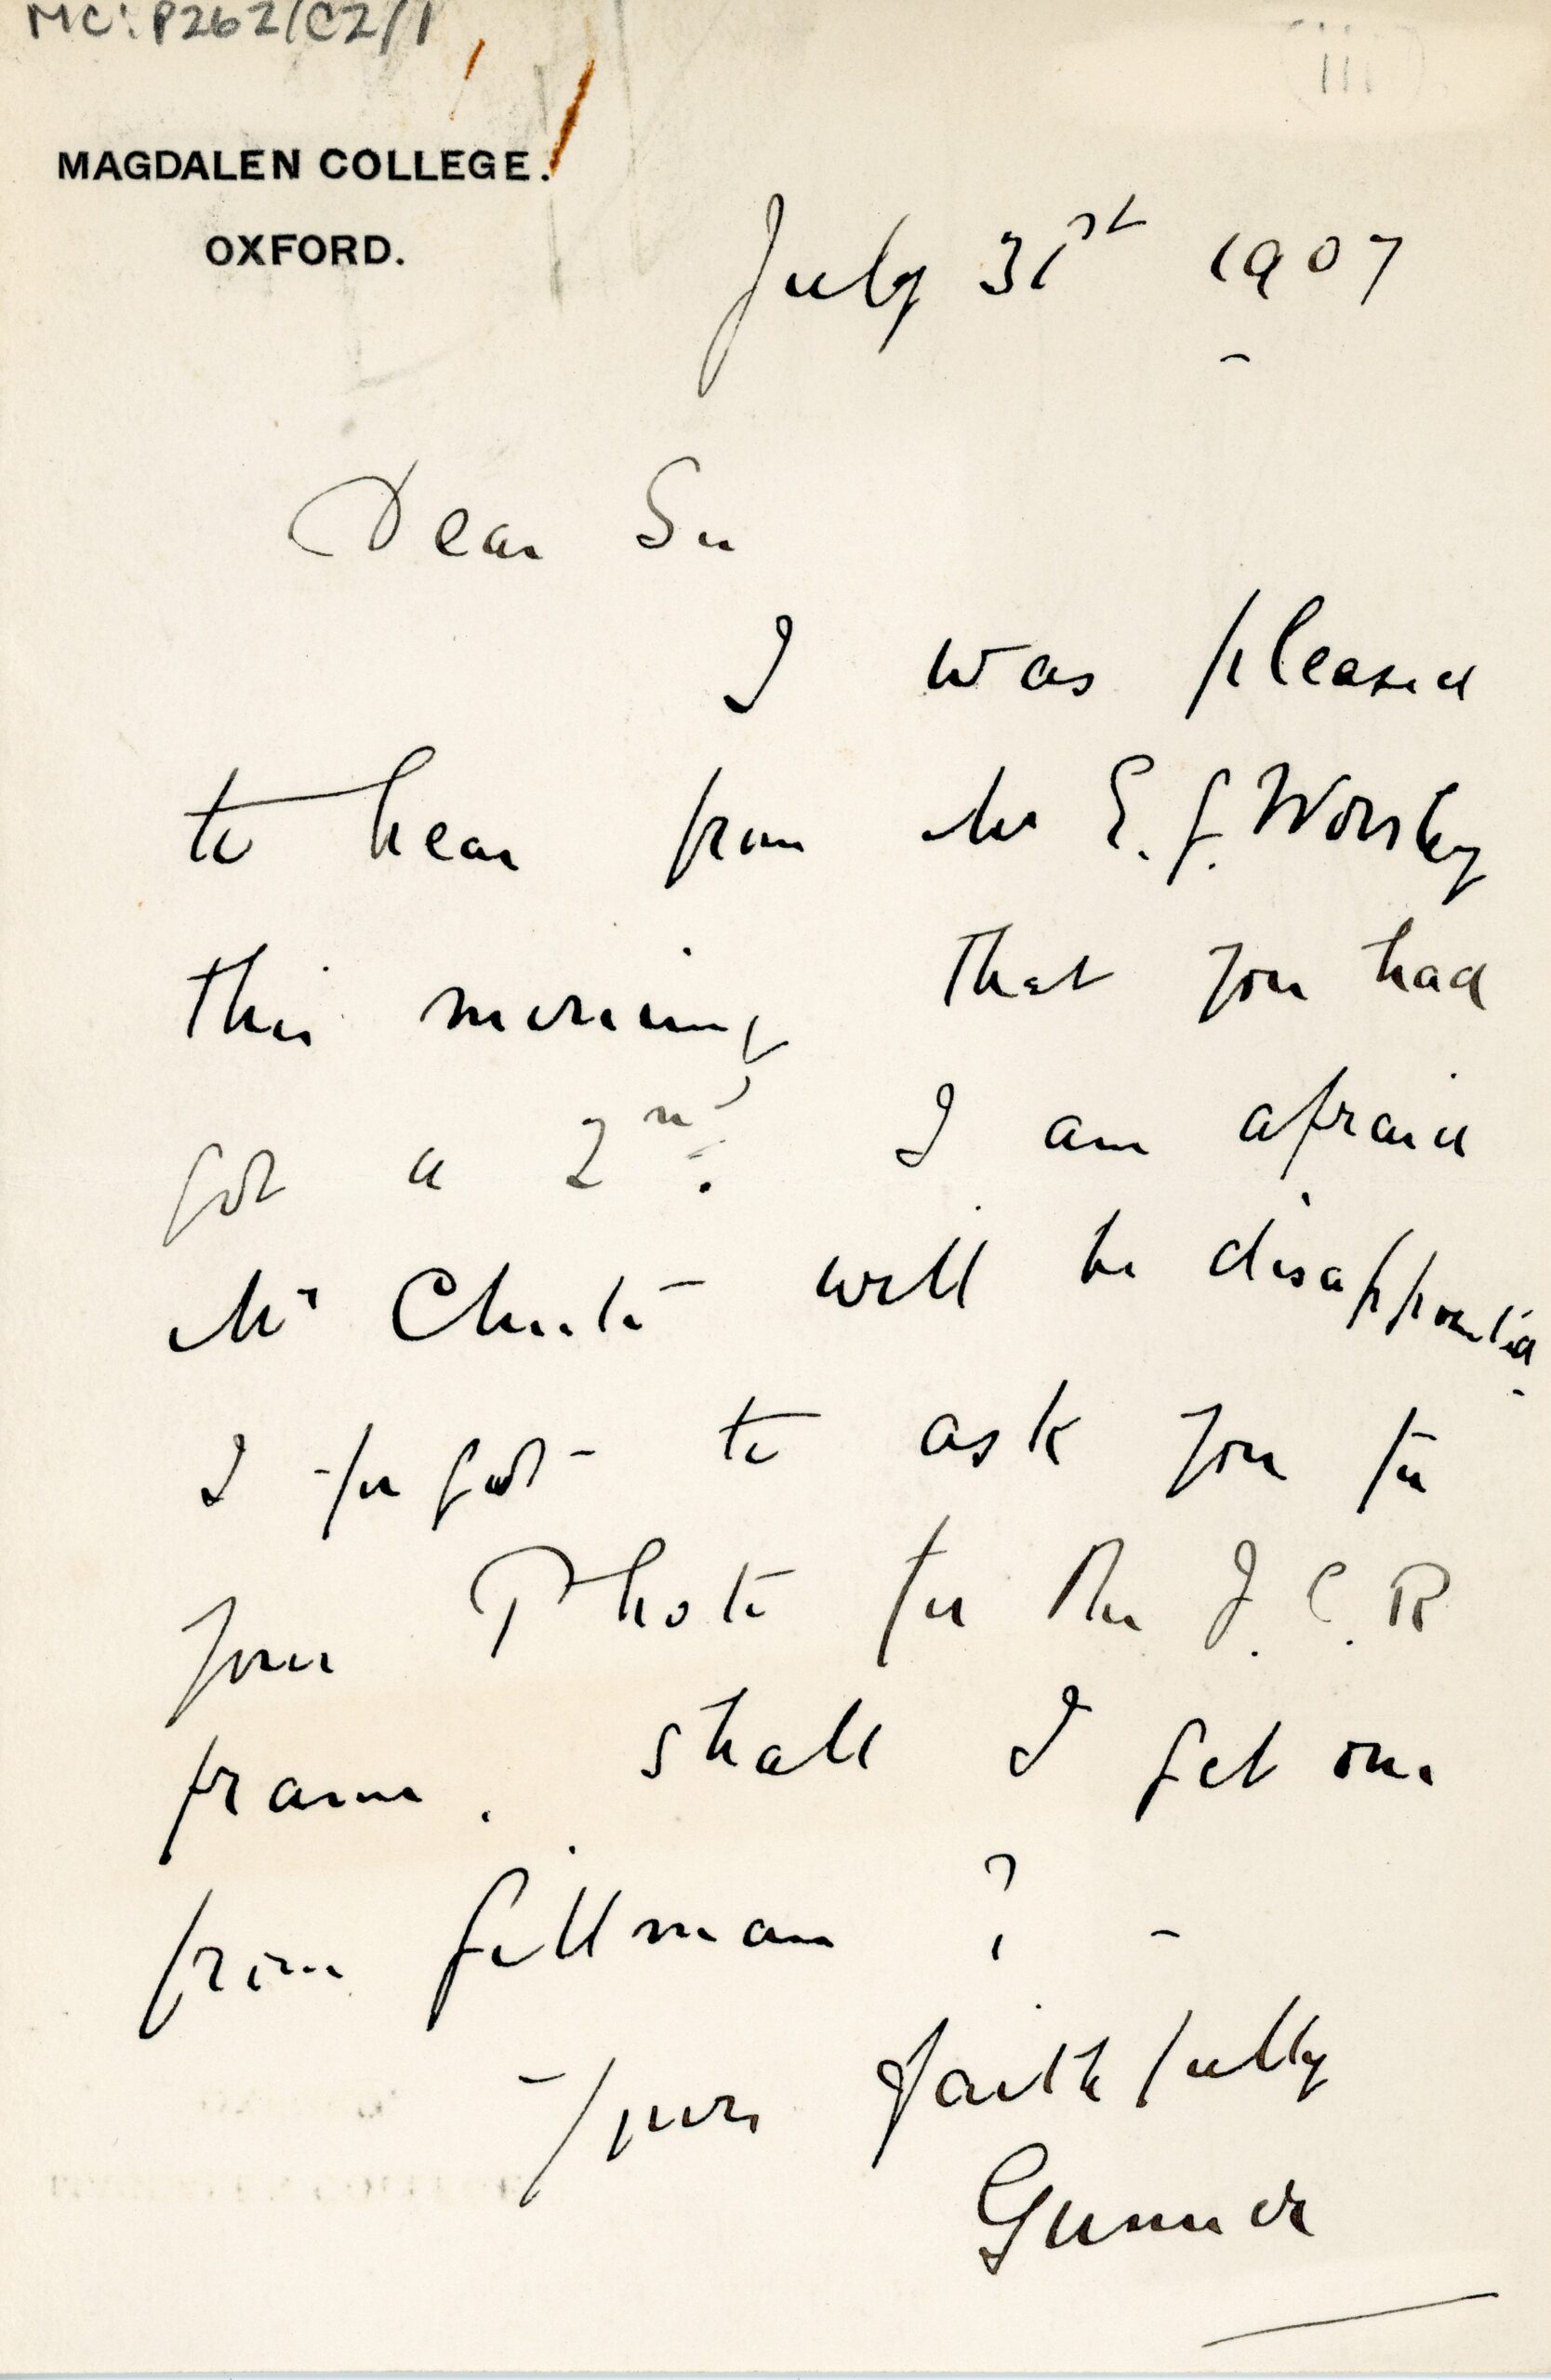 MC: P262/C2/1
(iii)
MAGDALEN COLLEGE.
OXFORD.
July 31st 1907
Dear Sir
I was pleased
to hear from Mr E. G. Worsley
this morning that you had
got a 2nd. I am afraid
Mr Christie will be disappointed.
I forgot to ask you for
your Photo for the J.C.R
frame. Shall I get one
from Gillman ? -
Yours faithfully
Gunner